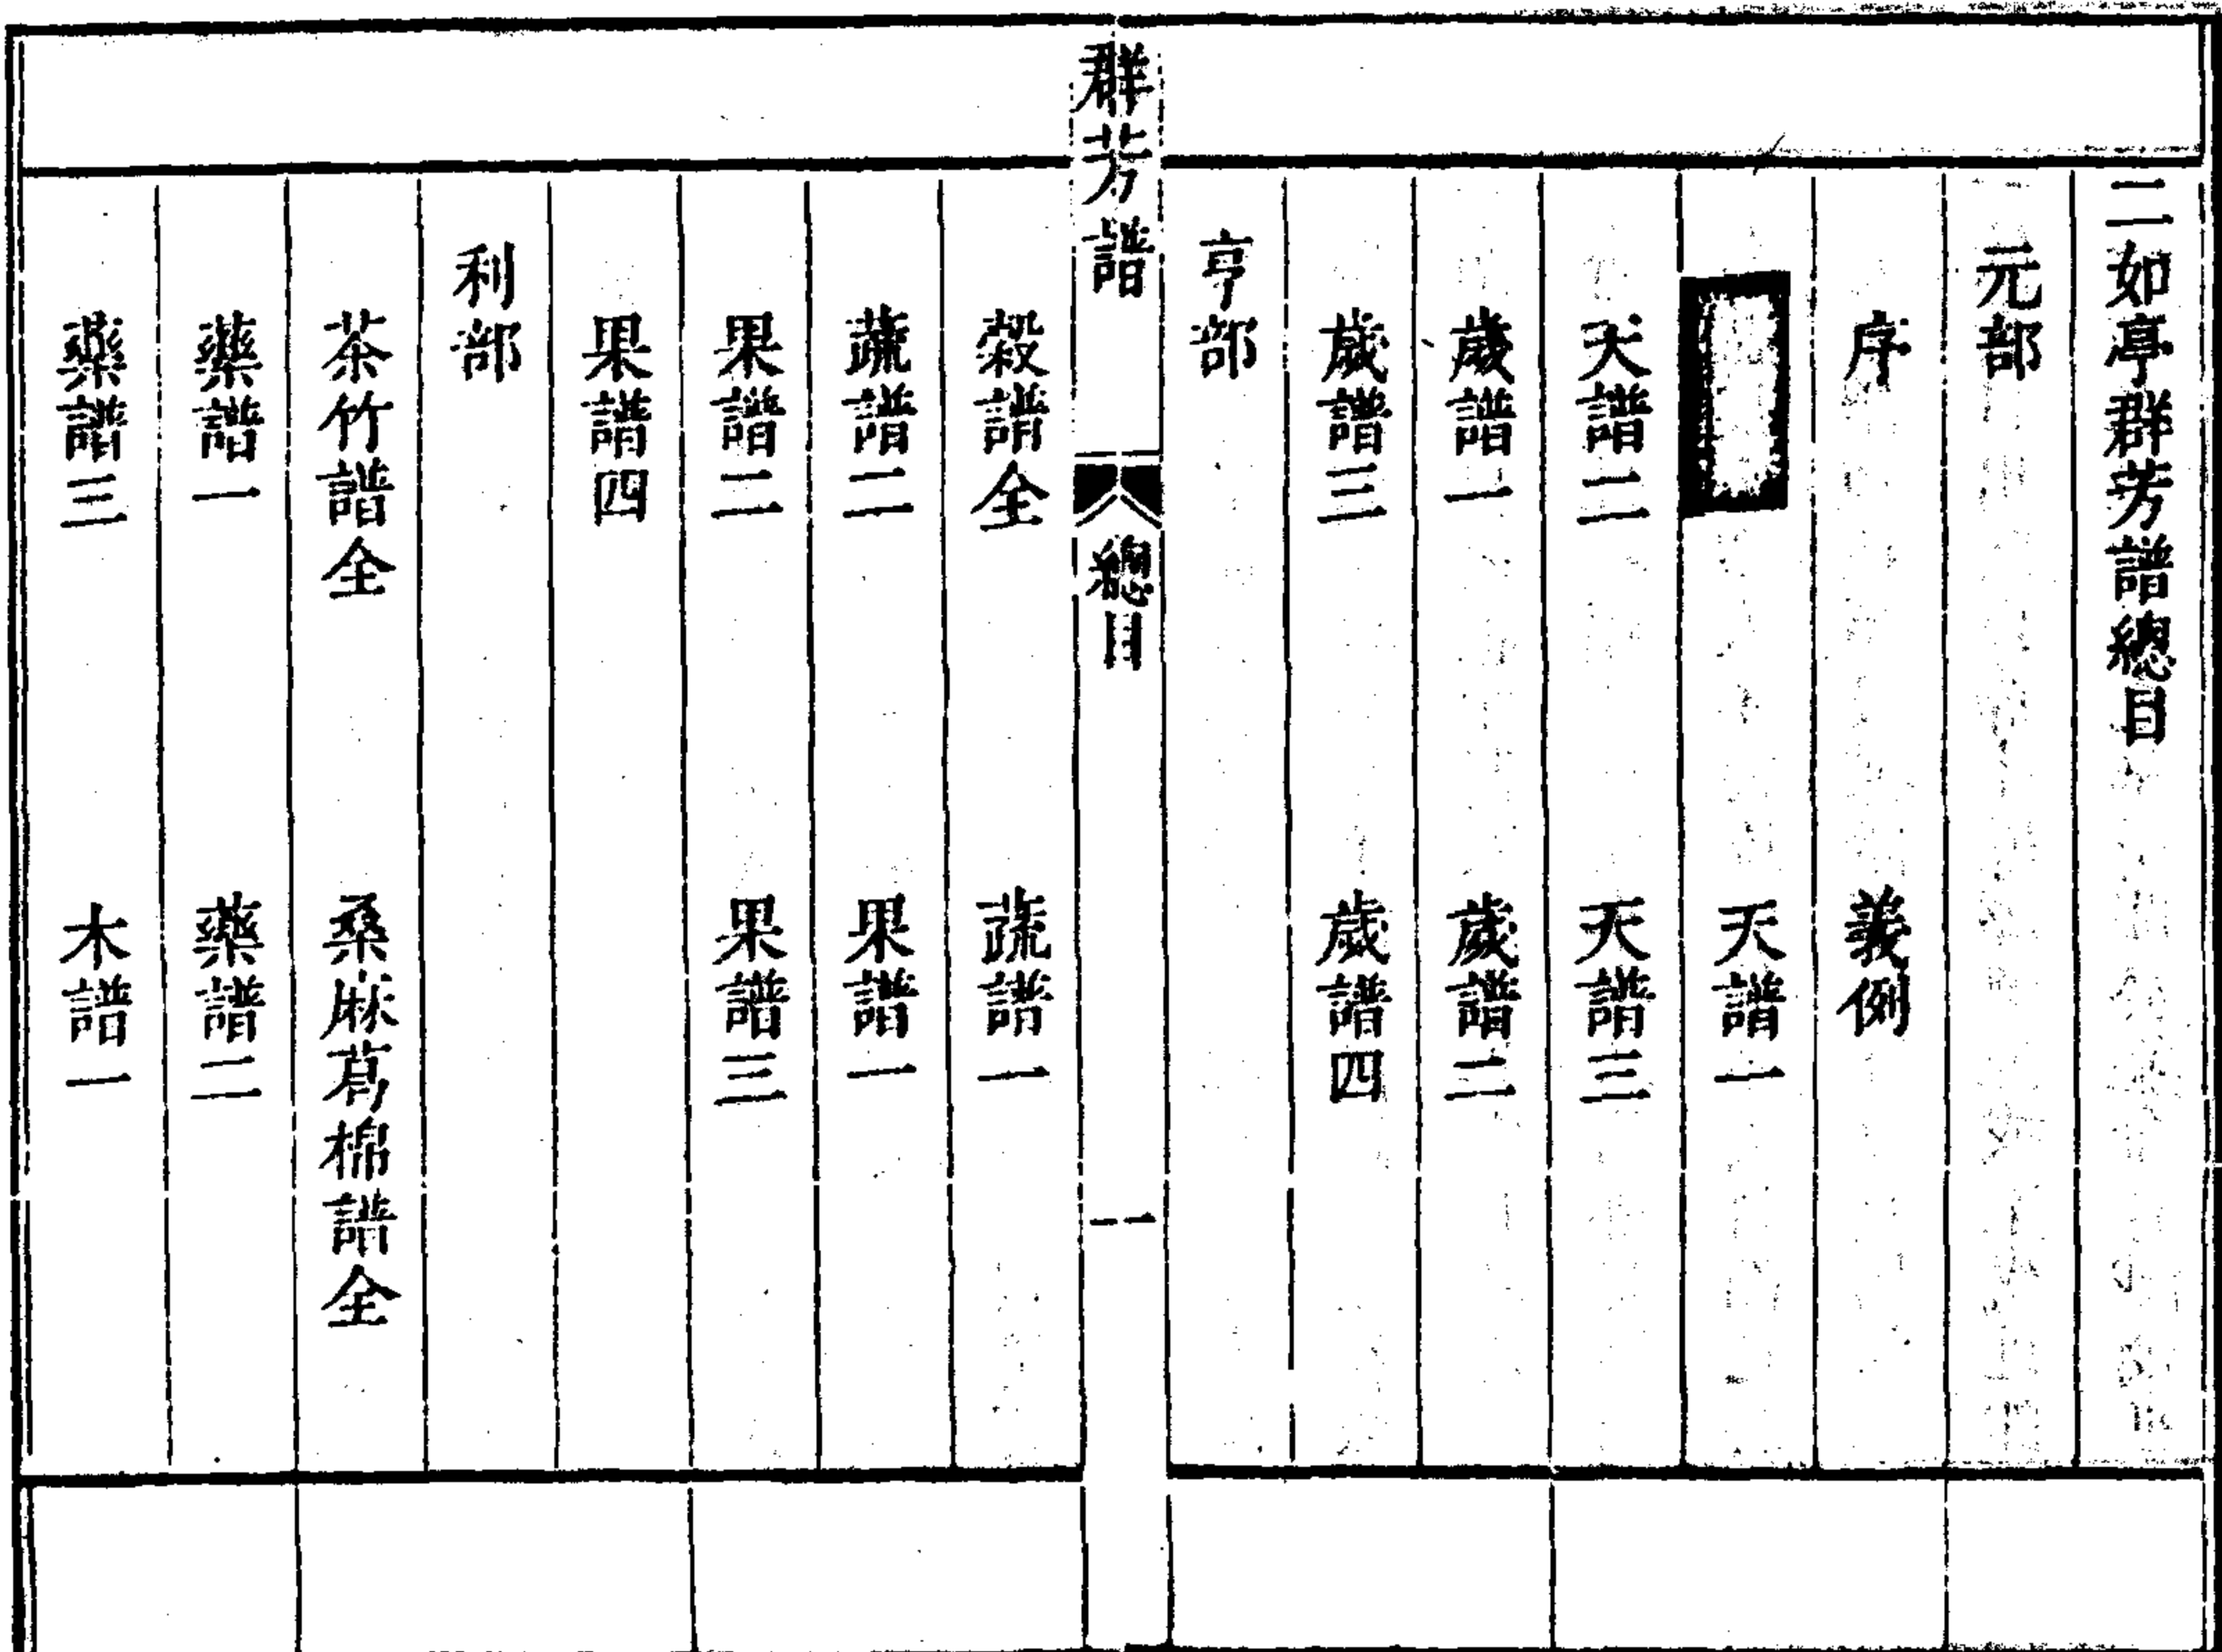 二如亭群芳譜總目
元部
序 義例
天譜一
天譜二 天譜三
歲譜一 歲譜二
歲譜三 歲譜四
亨部
群芳譜 總目 一
穀譜全 蔬譜一
蔬譜二 果譜一
果譜二 果譜三
果譜四
利部
茶竹譜全 桑麻葛棉譜全
藥譜一 藥譜二
藥譜三 木譜一